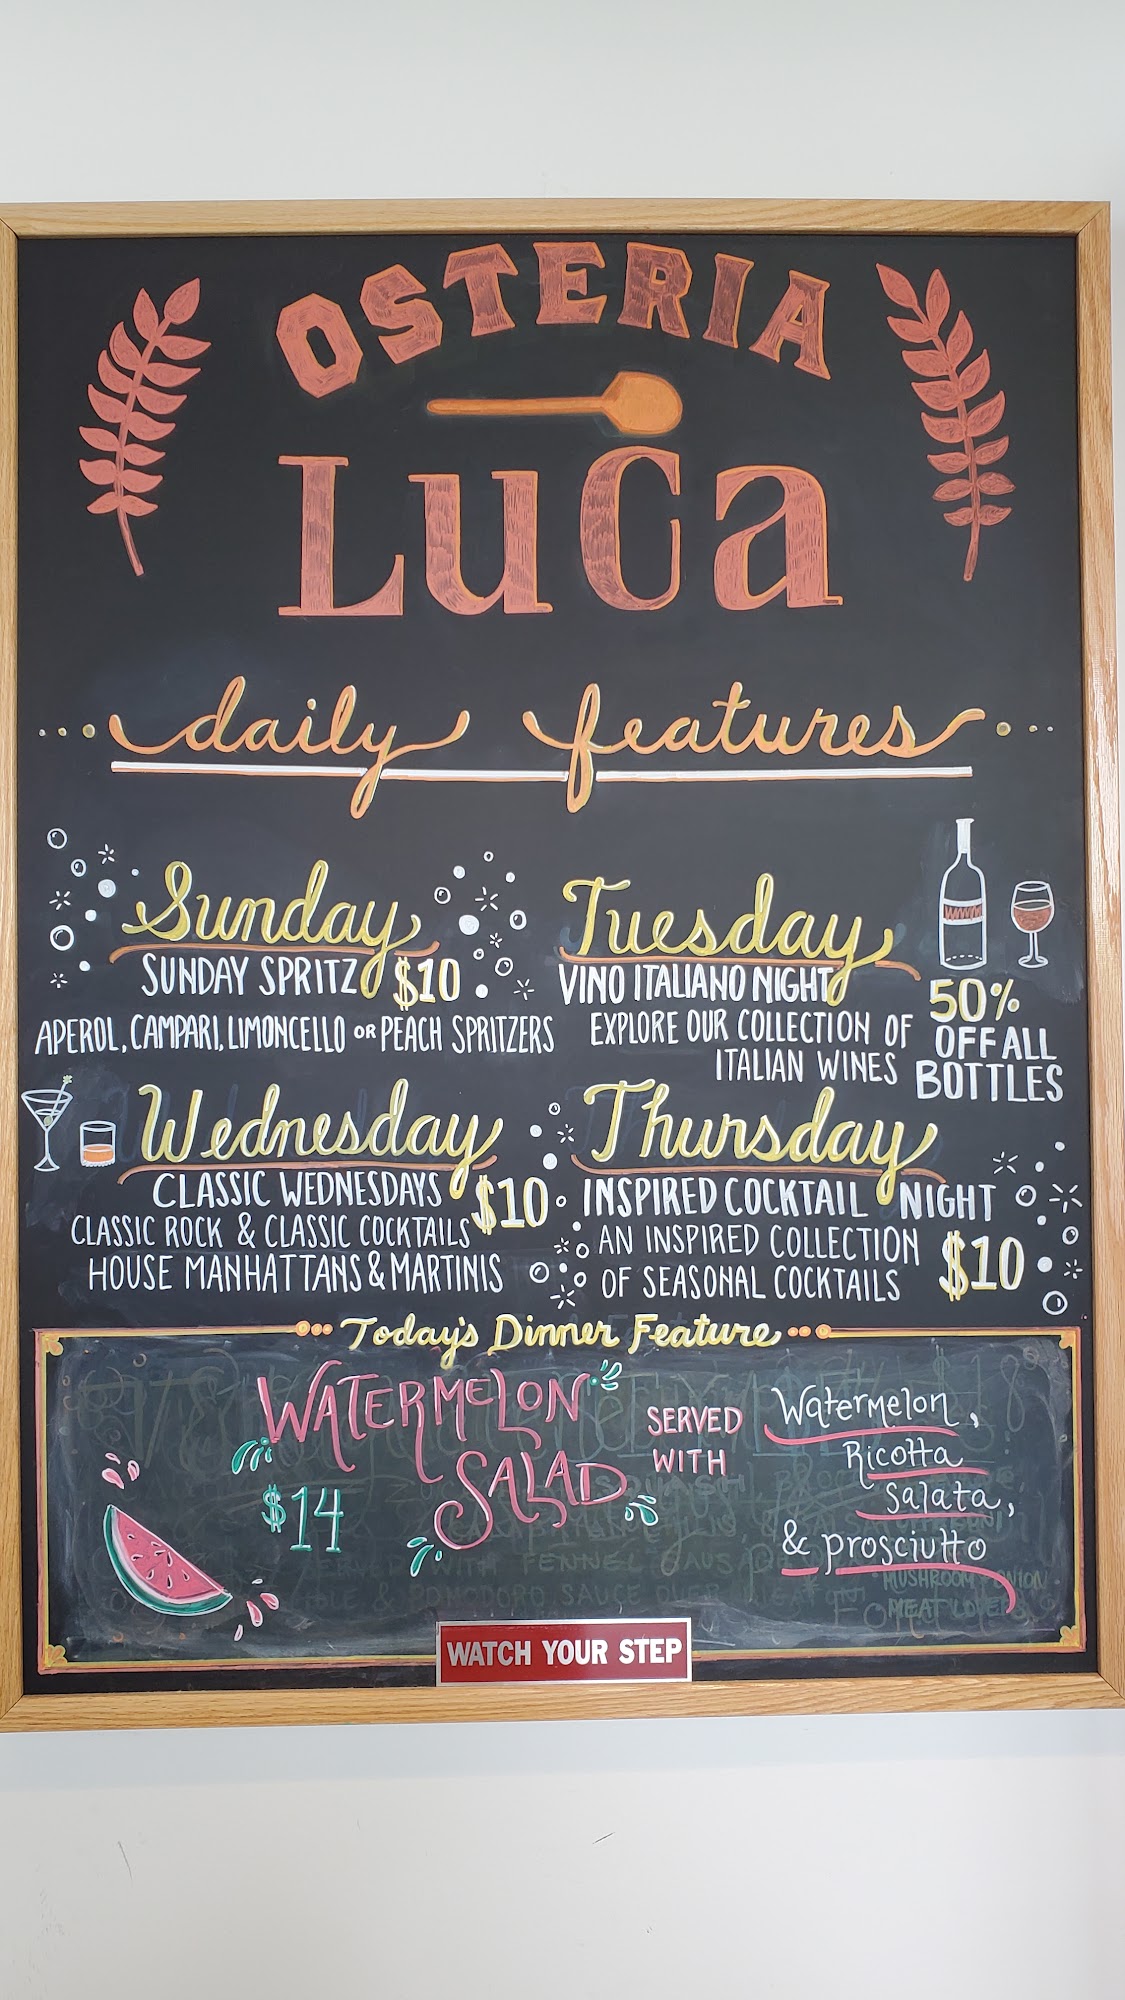 OSTERIA
LuCa
daily features
Sunday
SUNDAY SPRITZ $10
APEROL, CAMPARI, LIMONCELLO OR PEACH SPRITZERS
Tuesday
VINO ITALIANO NIGHT
EXPLORE OUR COLLECTION OF
ITALIAN WINES
50%
OFF ALL
BOTTLES
Wednesday
CLASSIC WEDNESDAYS
CLASSIC ROCK & CLASSIC COCKTAILS
HOUSE MANHATTANS & MARTINIS
$10
Thursday
INSPIRED COCKTAIL NIGHT
AN INSPIRED COLLECTION
OF SEASONAL COCKTAILS
$10
Today's Dinner Feature
WATERMELON
SALAD
$14
SERVED
WITH
Watermelon,
Ricotta
Salata,
& prosciutto
MUSHROOM ONION
MEAT LOVERS
WATCH YOUR STEP